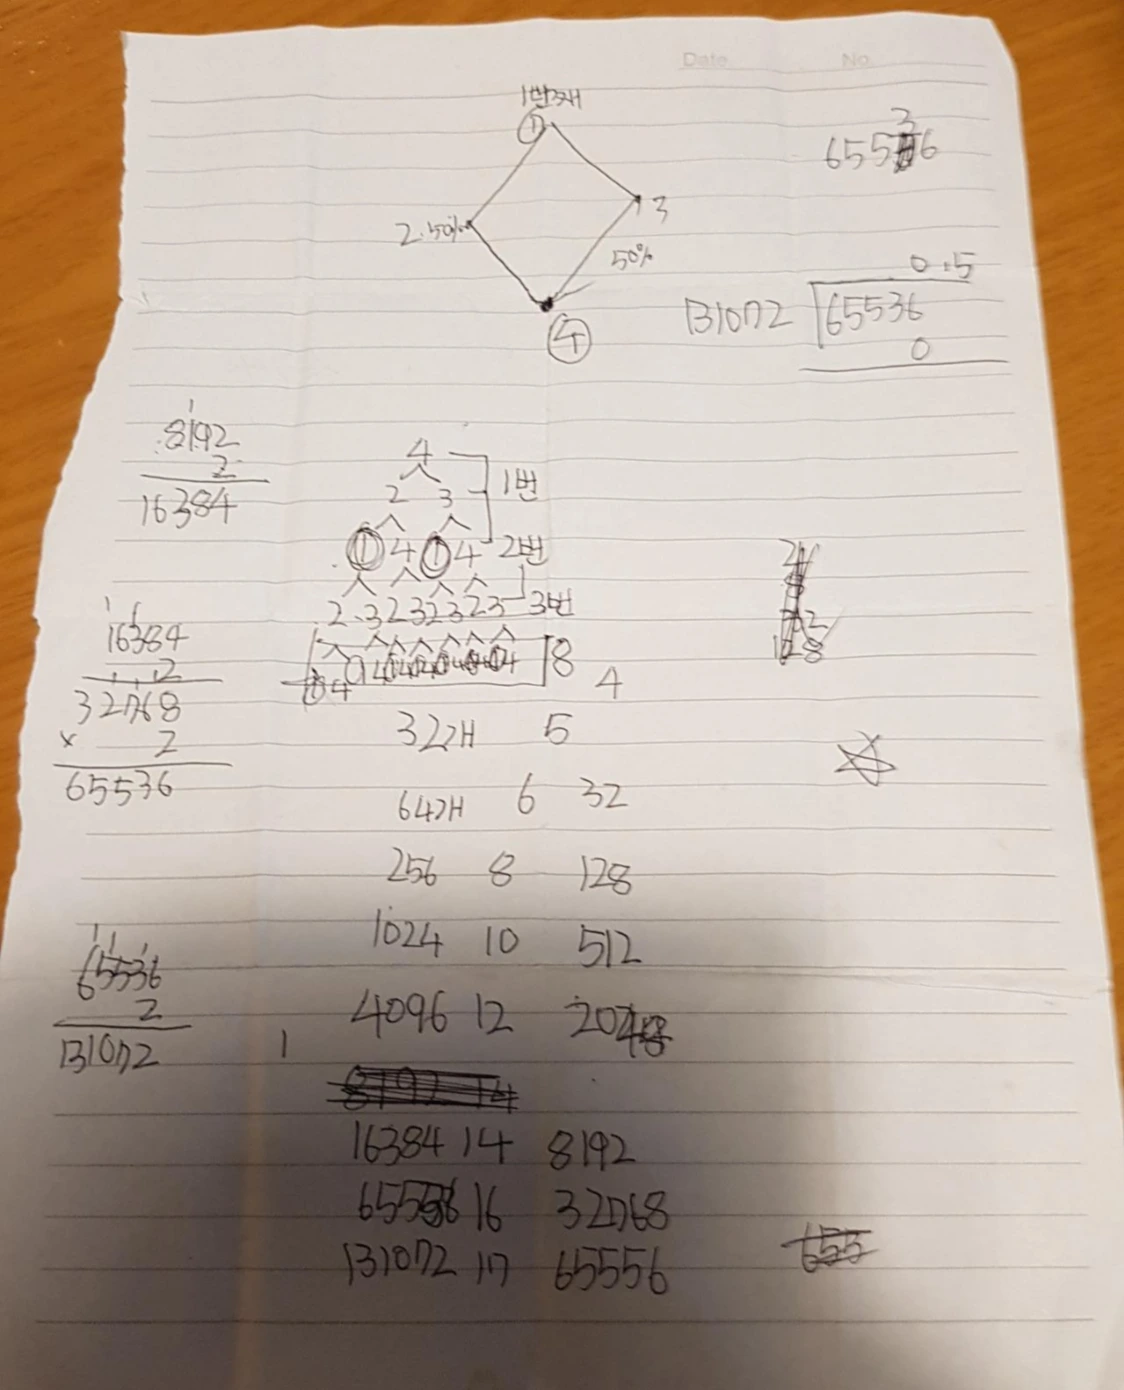 Date No
1번째
①
3
65536
2.50%
3
50%
④
0.5
131072 65536
0
1
8192
2
16384
4
2 3 1번
① 4 ① 4 2번
2 3 2 3 2 3 2 3 3번
8
4
1 1
16384
2
32768
x 2
65536
32개 5
64개 6 32
256 8 128
1024 10 512
4096 12 2048
1 1 1
65536
2
131072
1
16384 14 8192
65536 16 32768
131072 17 65556